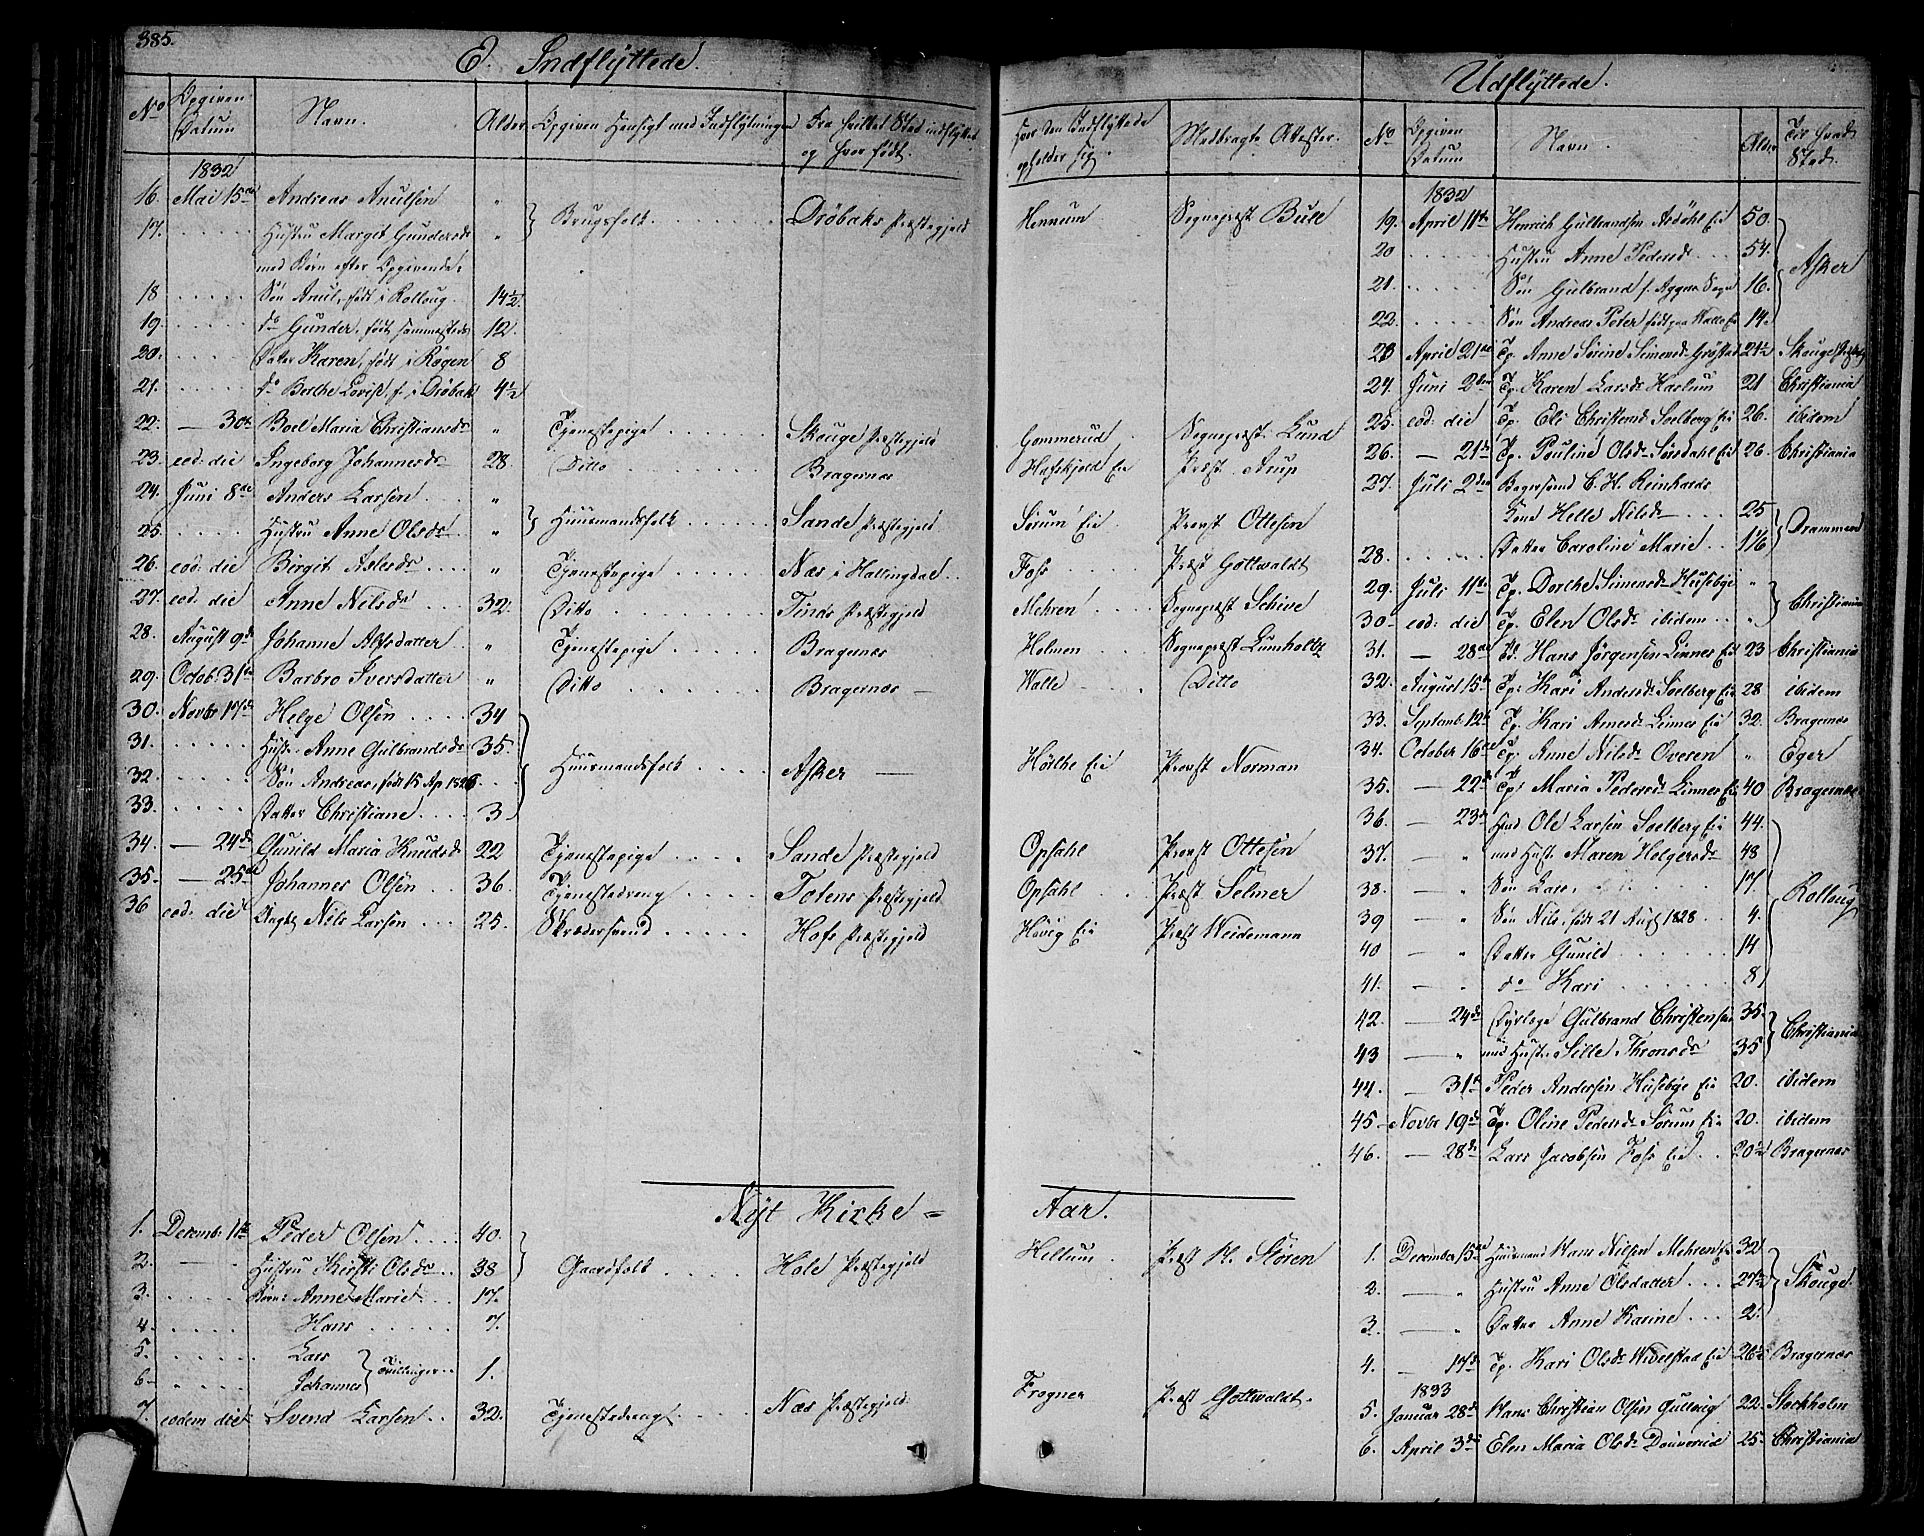 385.
E. Indflyttede.
No Opgiven Datum Navn. Alder Opgiven Hensigt med Indflytningen Fra hvilket Sted indflyttet og hvor født. Hvor den Indflyttede opholder sig Medbragte Attester.
1832
16. Mai 15de Andreas Anulsen " } Brugsfolk. Drøbaks Præstegjeld Hennum Sognepræst Bull
17. Hustru Margit Gundersdr "
med Børn efter Opgivende:
18 Søn Anul, født i Rolloug. 14½
19. do Gunder, født sammesteds 12.
20. Datter Karen, født i Røgen 8
21. do Berthe Lovise, f. i Drøbak 4½
22. — 30te Boel Maria Christiansdr " Tjenestepige Skouge Præstegjeld Gommerud Sognepræst Lund
23. eod: die Ingeborg Johannesdr 28. Ditto Bragernæs Hafskjold Eie Præst Arup
24. Juni 8de Anders Larsen "
25. Hustru Anne Olsdr " } Huusmandsfolk Sande Præstegjeld Sørum Eie Provst Ottesen
26. eod: die Birgit Aslesdr " Tjenestepige Næs i Hallingdal Foss Præst Gottwaldt
27. eod: die Anne Nilsdr 32. Ditto Tinds Præstegjeld Mehren Sognepræst Schive
28. August 9de Johanne Alfsdatter " Tjenestepige Bragernæs Holmen Sognepræst Lumholtz
29. Octob. 31te Barbro Iversdatter " Ditto Bragernæs — Walle Ditto
30. Novbr 17de Helge Olsen 34
31. Hustr. Anne Gulbrandsdr 35. } Huusmandsfolk Asker — Høilke Eie Provst Norman
32. Søn Andreas, født 15 Ap 1826
33. Datter Christiane 3
34. — 24de Gunild Maria Knudsdr 22 Tjenestepige Sande Præstegjeld Opsahl Provst Ottesen
35. — 25de Johannes Olsen 36. Tjenestedreng Totens Præstegjeld Opsahl Præst Selmer
36 eod: die Ungkl Nils Larsen 25. Skrædersvend Hofs Præstegjeld Høvig Eie Præst Weidemann
Nyt Kirke = Aar.
1. Decemb. 1te Peder Olsen 40.
2. — Hustru Kirsti Olsdr 38 } Gaardfolk Hole Præstegjeld Hellum Præst H. Støren
3. Børn: Anne Marie 17.
4. Hans 7.
5. Lars
6. Johannes } Tvillinger 1.
7. eodem die Svend Larsen 32. Tjenestedreng Næs Præstegjeld Frogner Præst Gottwaldt.
Udflyttede.
No Opgiven Datum Navn. Alder Til hvad Sted.
1832
19. April 11te Henrich Gulbrandsen Eie 50.
20 Hustru Anne Pedersdr 54. } Asker
21. Søn Gulbrand f. Aggers Sogn 16.
22. Søn Andreas Peter født paa Walle Eie 14.
23 April 21de Tp. Anne Sørine Simensdr Grøstad 21½ Skouge
24. Juni 2den Tp. Karen Larsdr Harlum 21 Christiania
25. eod: die Tp. Eli Christensdr Soelberg Eie 26. ibidem
26. — 21de Tp. Pauline Olsdr Sørsdahl Eie 26. Christiania
27. Juli 2den Bagersvend C. H. Reinhards
Kone Helle Nilsdr 25 } Drammen
28. Datter Caroline Marie 1 1/6
29. Juli 11te Tp. Dorthe Simensdr Husebye " } Christiania
30. eod: die Tp. Elen Olsdr ibidem "
31. — 28de Td. Hans Jørgensen Linnes Eie 23 Christiania
32. August 15de Tp. Kari Andersdr Solberg Eie 28 ibidem
33. Septemb. 12te Tp. Kari Arnesdr Linnes Eie 32. Bragernæs
34. October 16de Tp. Anne Nilsdr Overen " Eger
35. — 22de Tp. Maria Pedersdr Linnes Eie 40 Bragernæs
36. — 23de Hmd Ole Larsen Soelberg Eie 44.
37. — " med Hustr. Maren Helgersdr 48
38. — " Søn Lars 17.
39 — " Søn Nils, født 21 Augst 1828 4. } Rolloug
40 — " Datter Gunild 14
41. — " do Kari 8
42. — 24de Dyrlæge Gulbrand Christensen 35
43 — " med Hustr. Sille Thronsdr 35 } Christiania
44. — 31te Peder Andersen Husebye Eie 20. ibidem
45 — Novbr 19de Tp. Oline Pedersdr Sørum Eie 20. ibidem
46. — 28de Lars Jacobsen Foss Eie 20½ Bragernæs
1. December 15de Huusmand Hans Nielsen Mehren Eie 32
2 — " Hustru Anne Olsdatter 27½ } Skouge.
3. — " Datter Anne Karine 2.
4. — 17de Tp. Kari Olsdr Widelstad Eie 26½ Bragernæs
1833
5. Januar 28de Hans Christian Olsen Gullaug 22. Stockholm
6. April 3de Elen Maria Olsdr Douverud 25. Christiania